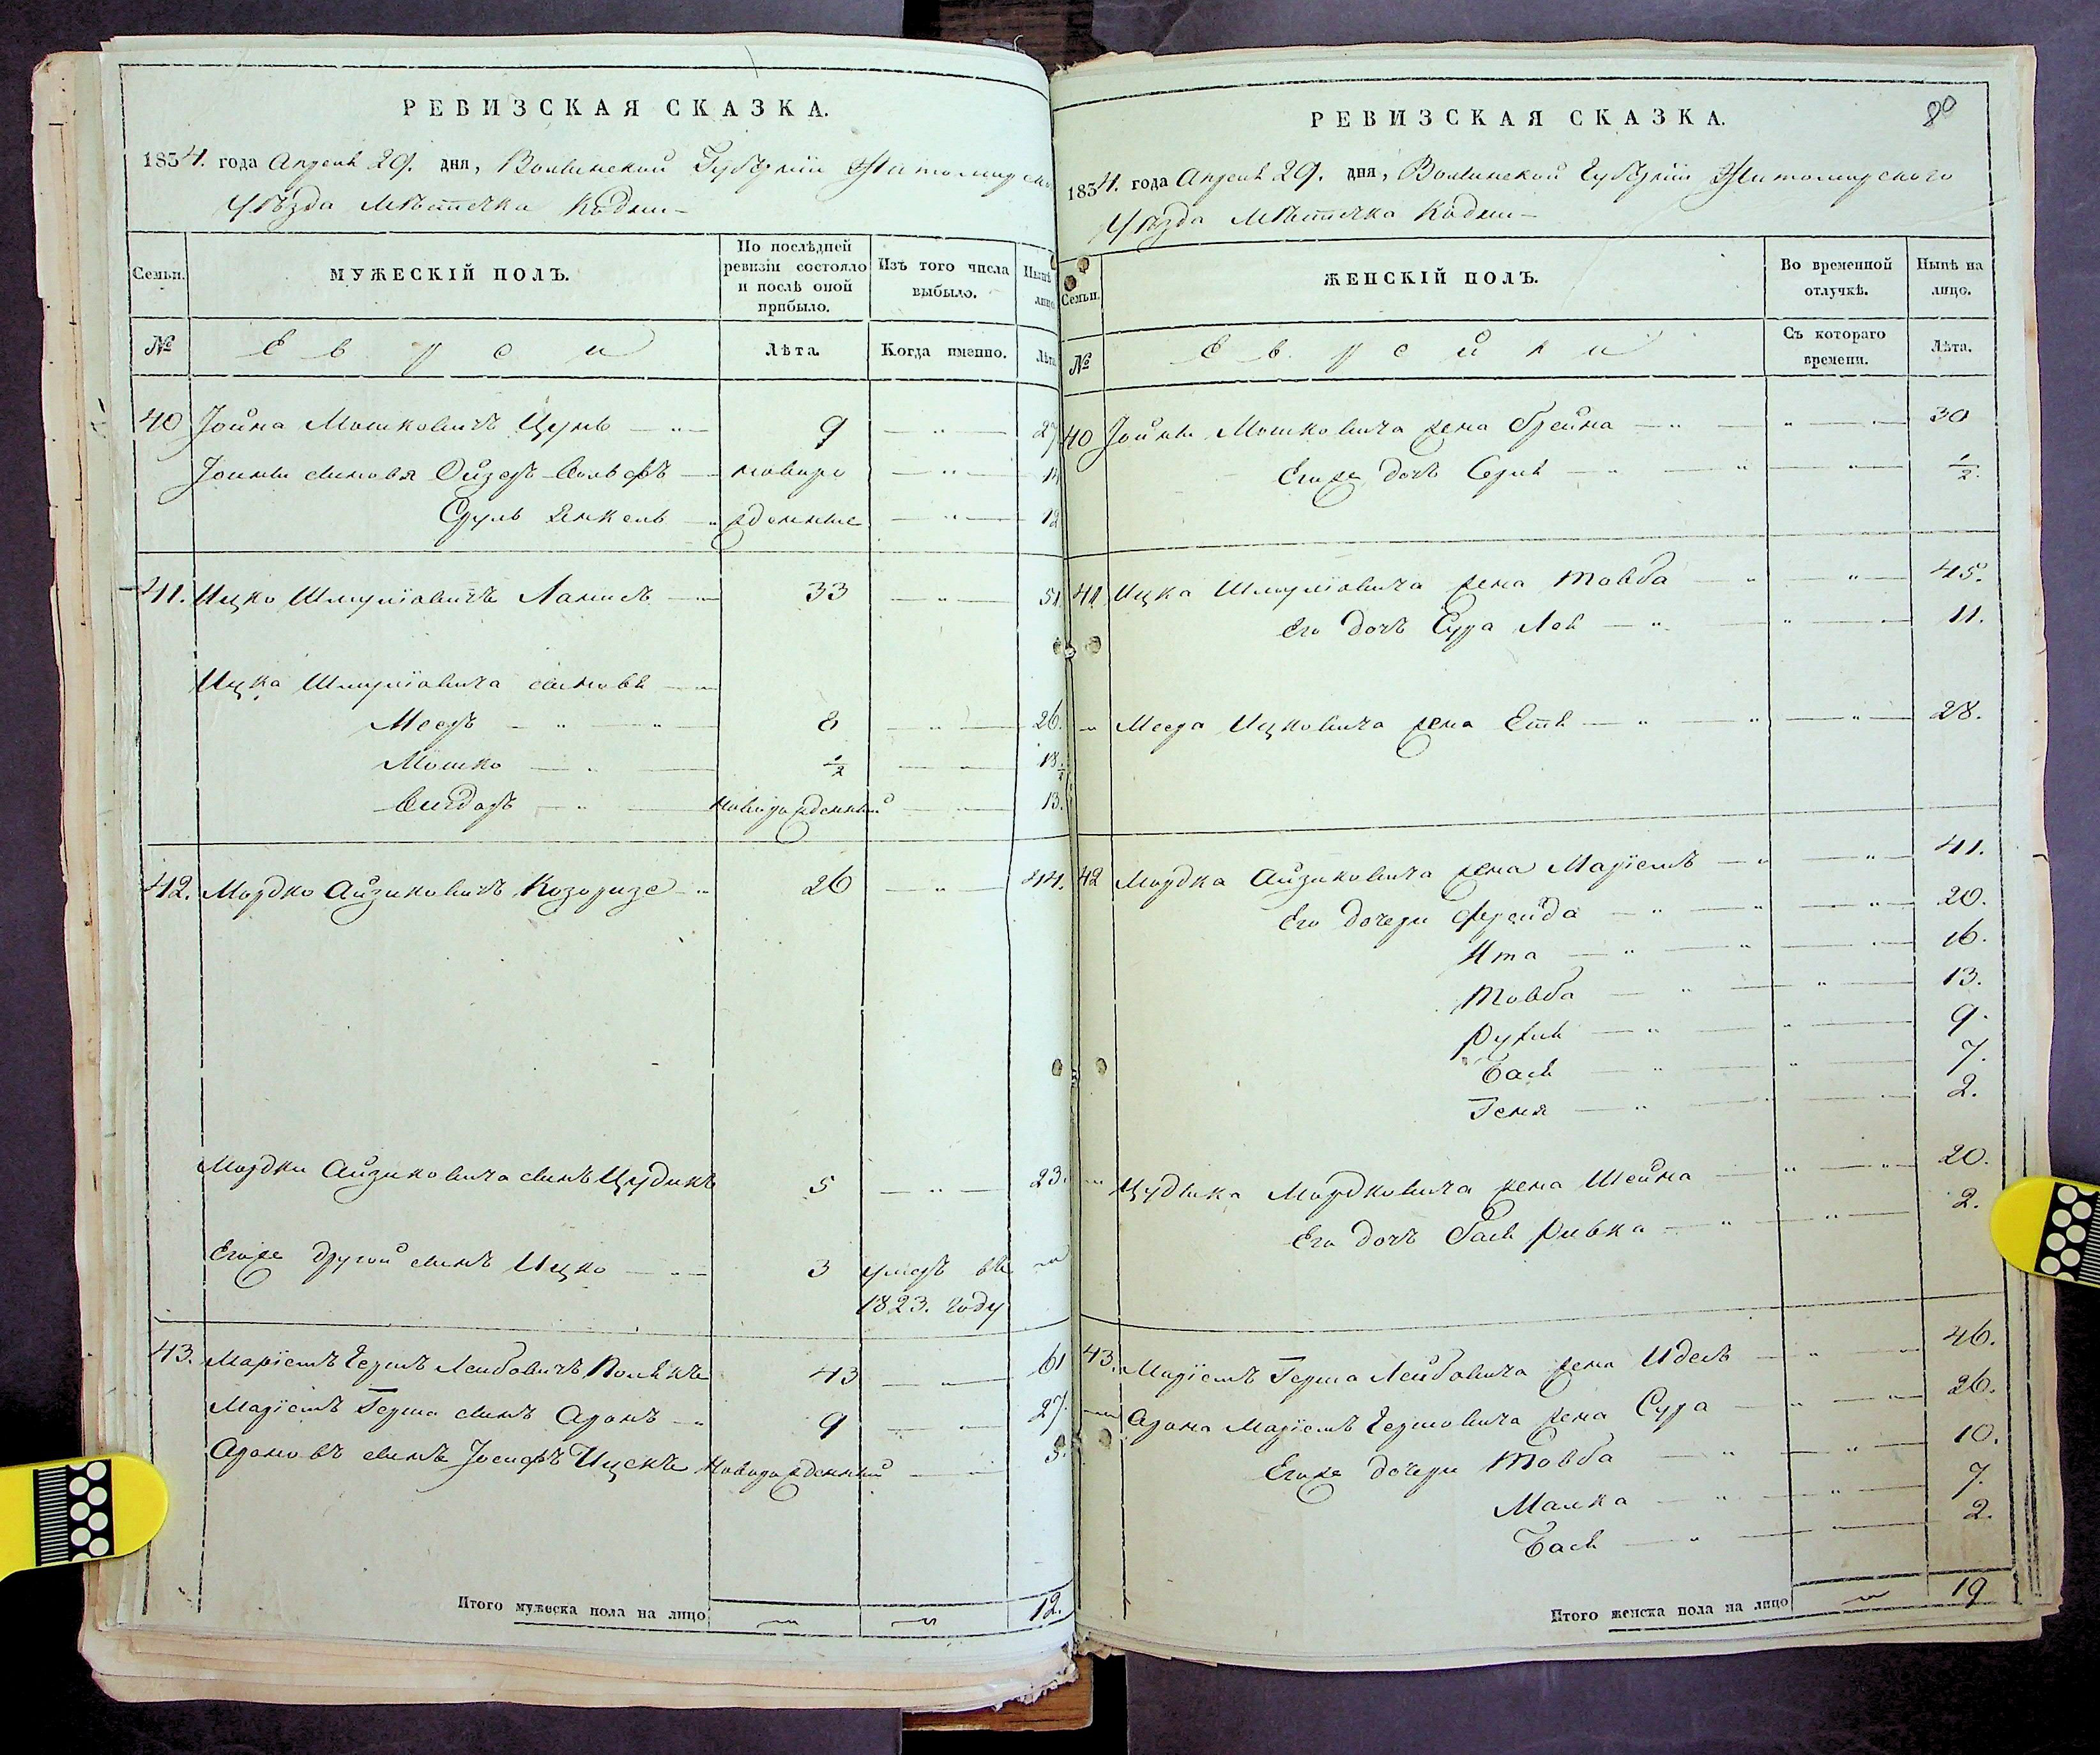 РЕВИЗСКАЯ СКАЗКА.
1834. года Апреля 29. дня, Волынской Губернии Житомирского
Уѣзда Мѣстечка Кодни
Семьи. МУЖЕСКІЙ ПОЛЪ. По послѣдней ревизіи состояло и послѣ оной прибыло. Изъ того числа выбыло. Нынѣ лицо
№ Евреи Лѣта. Когда именно. Лѣта
40 Іойна Мошковичъ Цунь 9 27
Іойны сыновя Ойзеръ Вольфъ новоро
Сруль Янкель жденные 12
41. Ицко Шмулiовичъ 33 51.
Ицка Шмулiовича сыновя
Мееръ 8 26.
Мошко 1/2 18 1/2
Вигдоръ новорожденный 13.
42. Мордко Айзиковичъ Козоризе 26 44.
Мордки Айзиковича сынъ Цудикъ 5 23.
Егоже другой сынъ Ицко 3 умеръ въ
1823. году
43. Маріемъ Гершъ Лейбовичъ 43 61
Маріемъ Герша сынъ Аронъ 9 27.
Ароновъ сынъ Іосифъ Ицекъ Новорожденный 5.
Итого мужеска пола на лицо 12.
РЕВИЗСКАЯ СКАЗКА.
80
1834. года Апреля 29. дня, Волынской Губерніи Житомирского
Уѣзда Мѣстечка Кодни
Семьи. ЖЕНСКІЙ ПОЛЪ. Во временной отлучкѣ. Нынѣ на лицо.
№ Еврейки Съ котораго времени. Лѣта.
40 Іойны Мошковича жена Фрейна 30
Егоже дочь 1/2.
41 Ицка Шмулiовича жена Товба 45.
Его дочь Сура Лея 11.
Меера Ицковича жена Етя 28.
42 Мордка Айзиковича жена Маріемъ 41.
Его дочери Фрейда 20.
Ита 16.
Товба 13.
Рухля 9.
Бася 7.
Геня 2.
Цудика Мордковича жена Шейна 20.
Его дочь Бася Ривка 2.
43. Маріемъ Герша Лейбовича жена Идесъ 46.
Арона Маріемъ Гершовича жена Сура 26.
Егоже дочери Товба 10.
Малка 7.
Бася 2.
Итого женска пола на лицо 19